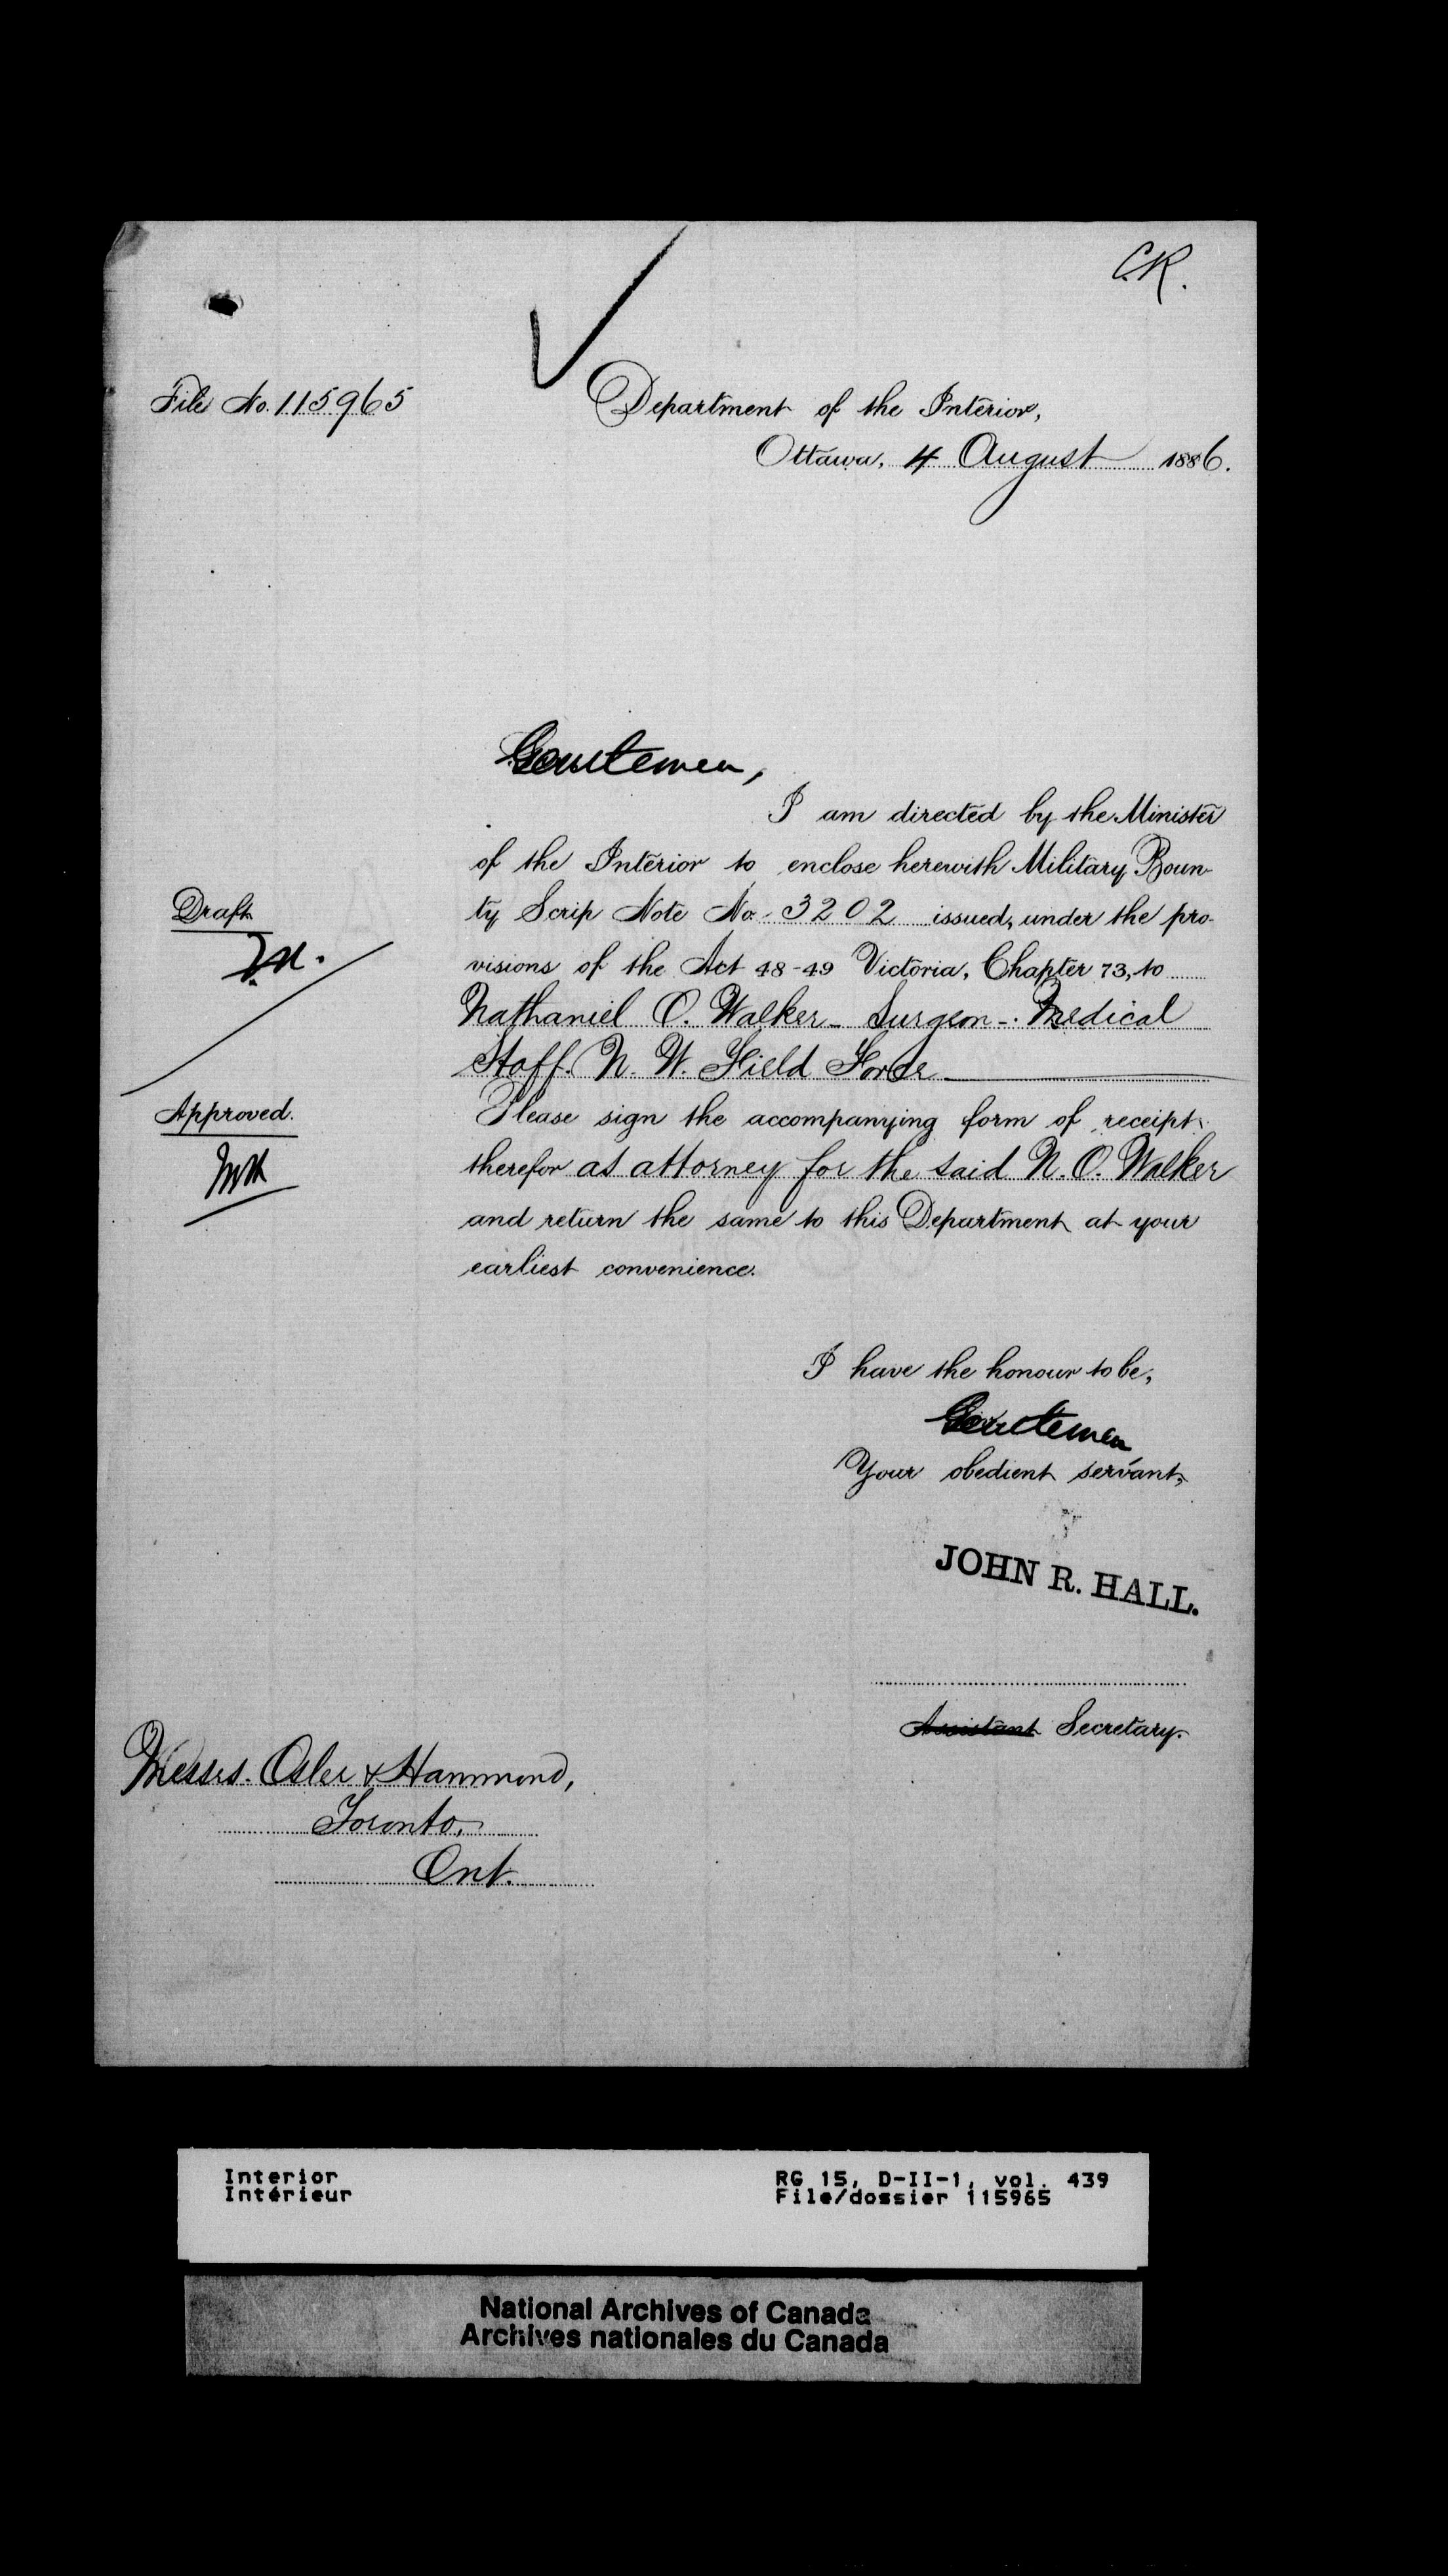 C.R.
File No. 115965
Department of the Interior,
Ottawa, 4 August 1886.
Gentlemen,
I am directed by the Minister
of the Interior to enclose herewith Military Boun-
ty Scrip Note No. 3202 issued, under the pro-
visions of the Act 48-49 Victoria, Chapter 73, to
Nathaniel O. Walker - Surgeon - Medical
Staff. N. W. Field Force
Please sign the accompanying form of receipt
therefor as attorney for the said N. O. Walker
and return the same to this Department at your
earliest convenience.
Draft
Approved.
I have the honour to be,
Gentlemen
Your obedient servant,
JOHN R. HALL.
Assistant Secretary.
Messrs. Osler & Hammond,
Toronto,
Ont.
Interior
Intérieur
RG 15, D-II-1, vol. 439
File/dossier 115965
National Archives of Canada
Archives nationales du Canada